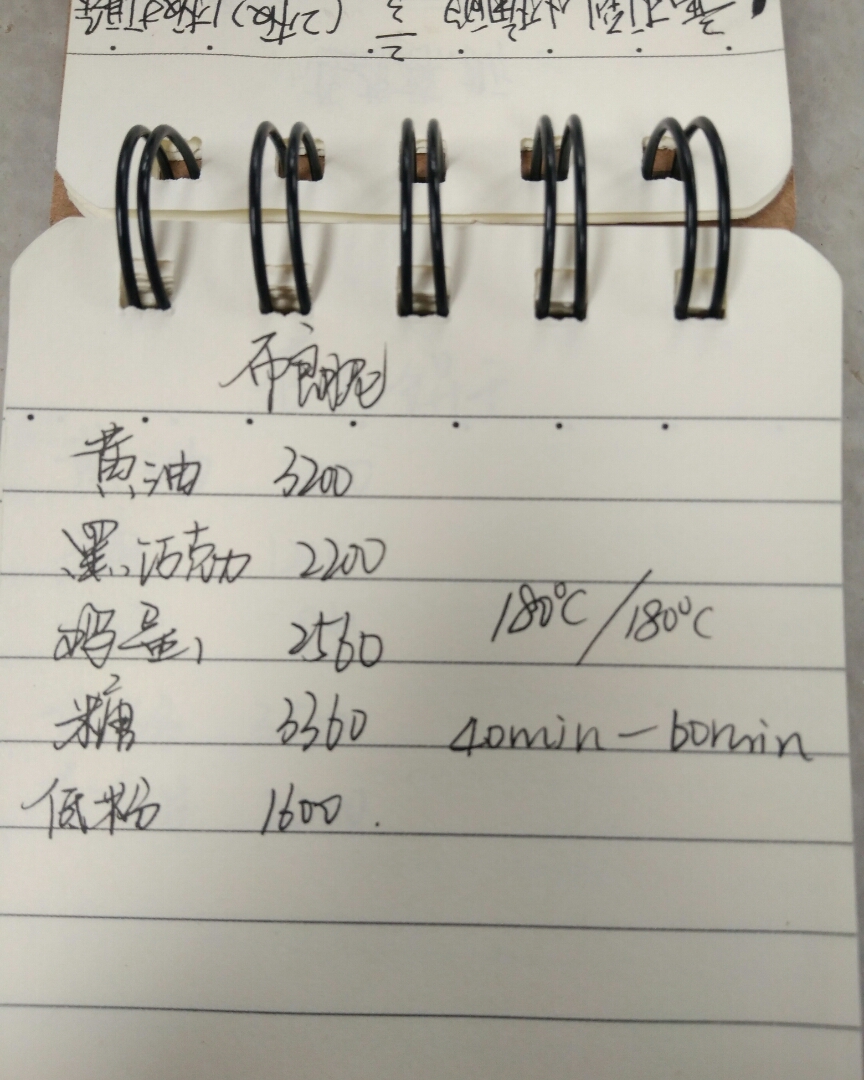 布朗尼
黄油 3200
黑巧克力 2200
鸡蛋 2560
180°C/180°C
糖 3360
40min-60min
低粉 1600.